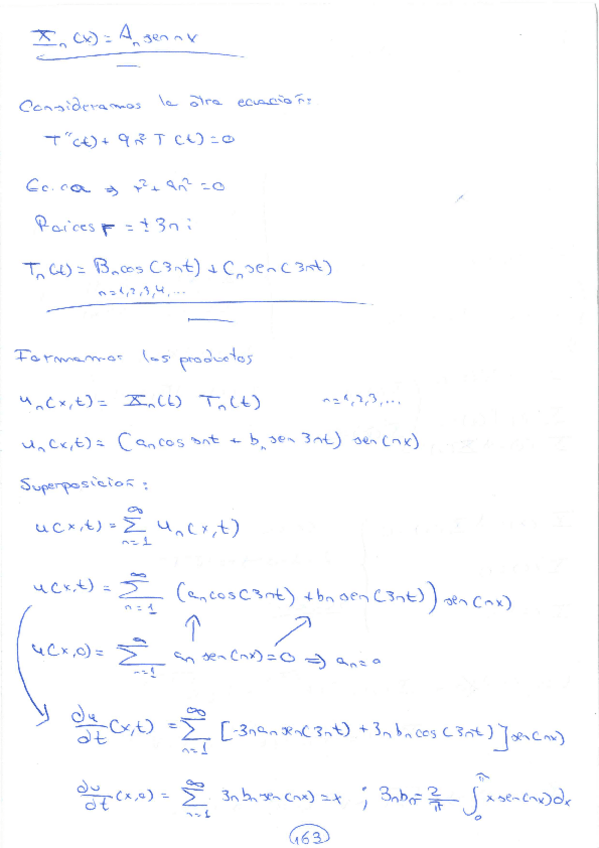 X_n(x) = A_n sen nx
Consideramos la otra ecuación:
T''(t) + 9n² T(t) = 0
Ec. ca ⇒ r² + 9n² = 0
Raices r = ± 3n i
T_n(t) = B_n cos(3nt) + C_n sen(3nt)
n = 1, 2, 3, 4, ...
Formamos los productos
u_n(x,t) = X_n(t) T_n(t) n = 1, 2, 3, ...
u_n(x,t) = (a_n cos 3nt + b_n sen 3nt) sen(nx)
Superposición:
u(x,t) = ∑_{n=1}^{∞} u_n(x,t)
u(x,t) = ∑_{n=1}^{∞} (a_n cos(3nt) + b_n sen(3nt)) sen(nx)
u(x,0) = ∑_{n=1}^{∞} a_n sen(nx) = 0 ⇒ a_n = 0
du/dt (x,t) = ∑_{n=1}^{∞} [-3n a_n sen(3nt) + 3n b_n cos(3nt)] sen(nx)
du/dt (x,0) = ∑_{n=1}^{∞} 3n b_n sen(nx) = x ; 3n b_n = 2/π ∫_0^π x sen(nx) dx
163